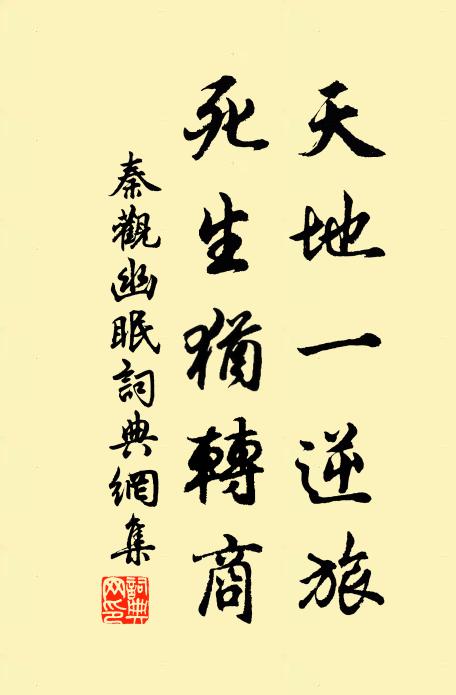 天地一逆旅
死生猶轉商
秦觀幽眠詞典網集
詞典网印